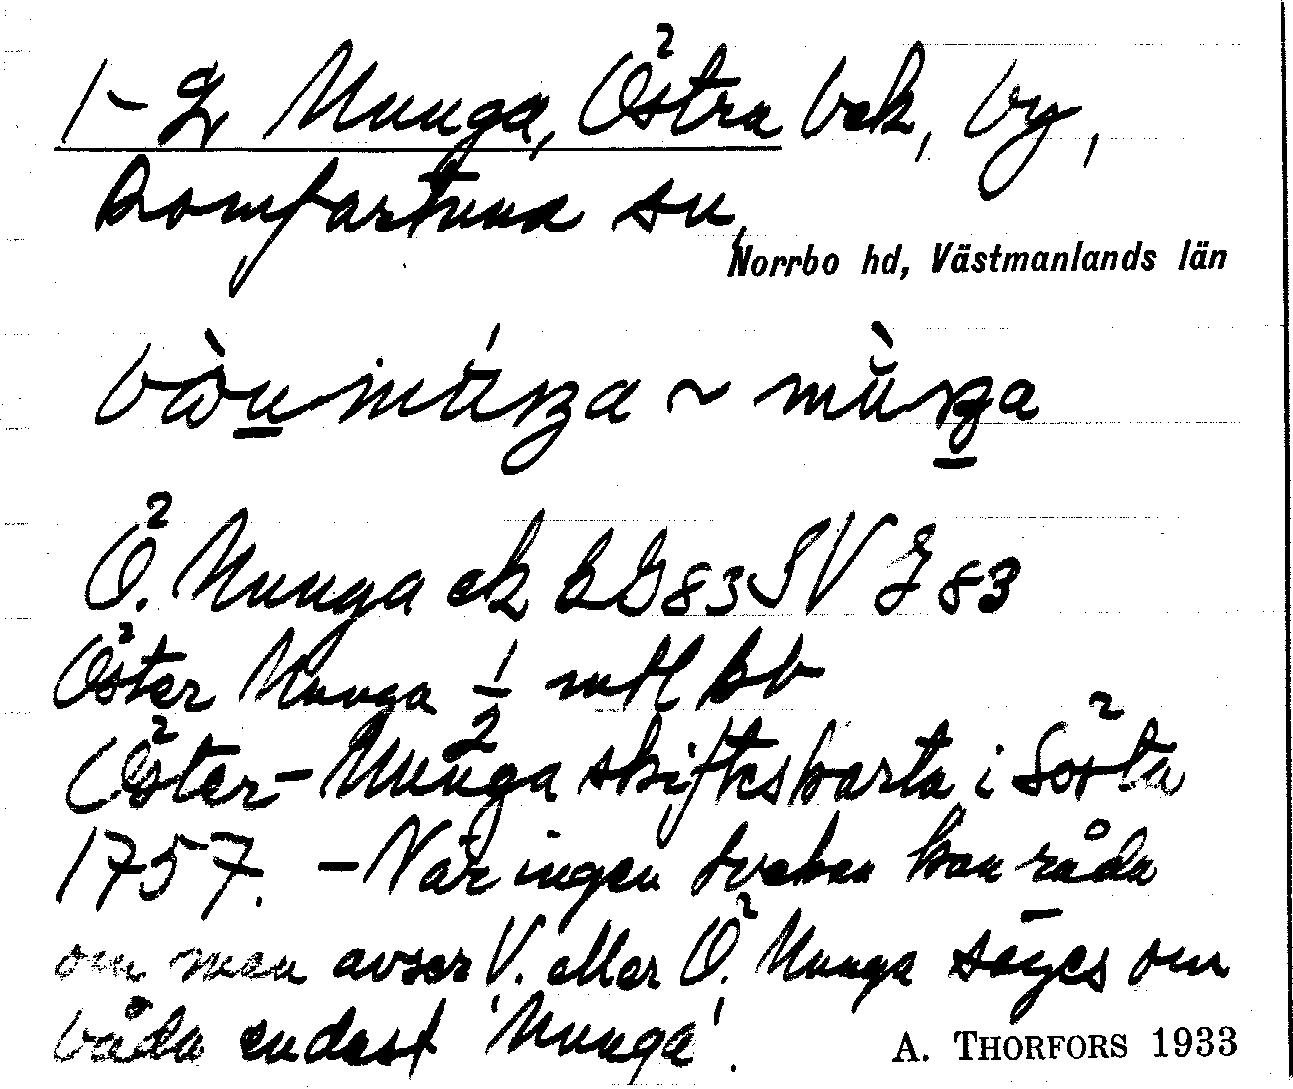 1-2 Munga, Östra bek, by,
Romfartuna sn,
Norrbo hd, Västmanlands län
Ö. Munga ek kG83SV J83
Öster Munga ½ mtl kb
Öster-Munga skifteskarta i Sörsta
1757. – När ingen tvekan kan råda
om man avser V. eller Ö. Munga säges om
båda endast 'Munga'.
A. THORFORS 1933